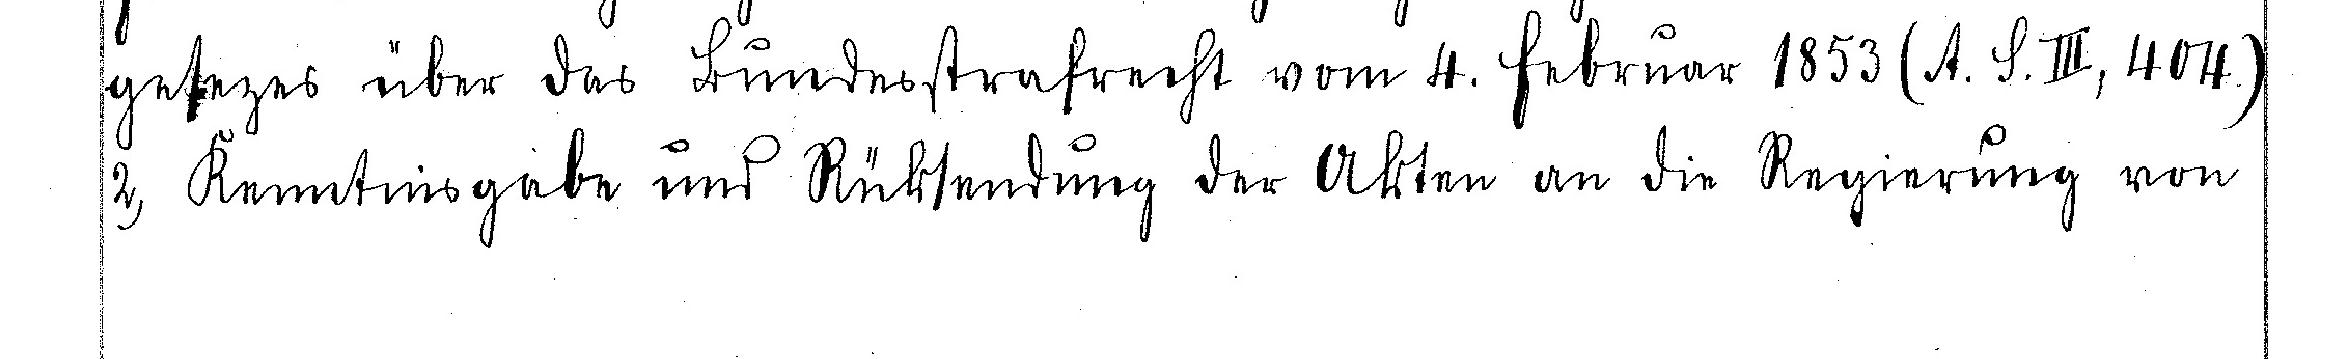 gesezes über das Bundesstrafrecht vom 4. Februar 1853 (A. S. III, 404.)
2, Kenntnisgabe und Rüksendung der Akten an die Regierung von